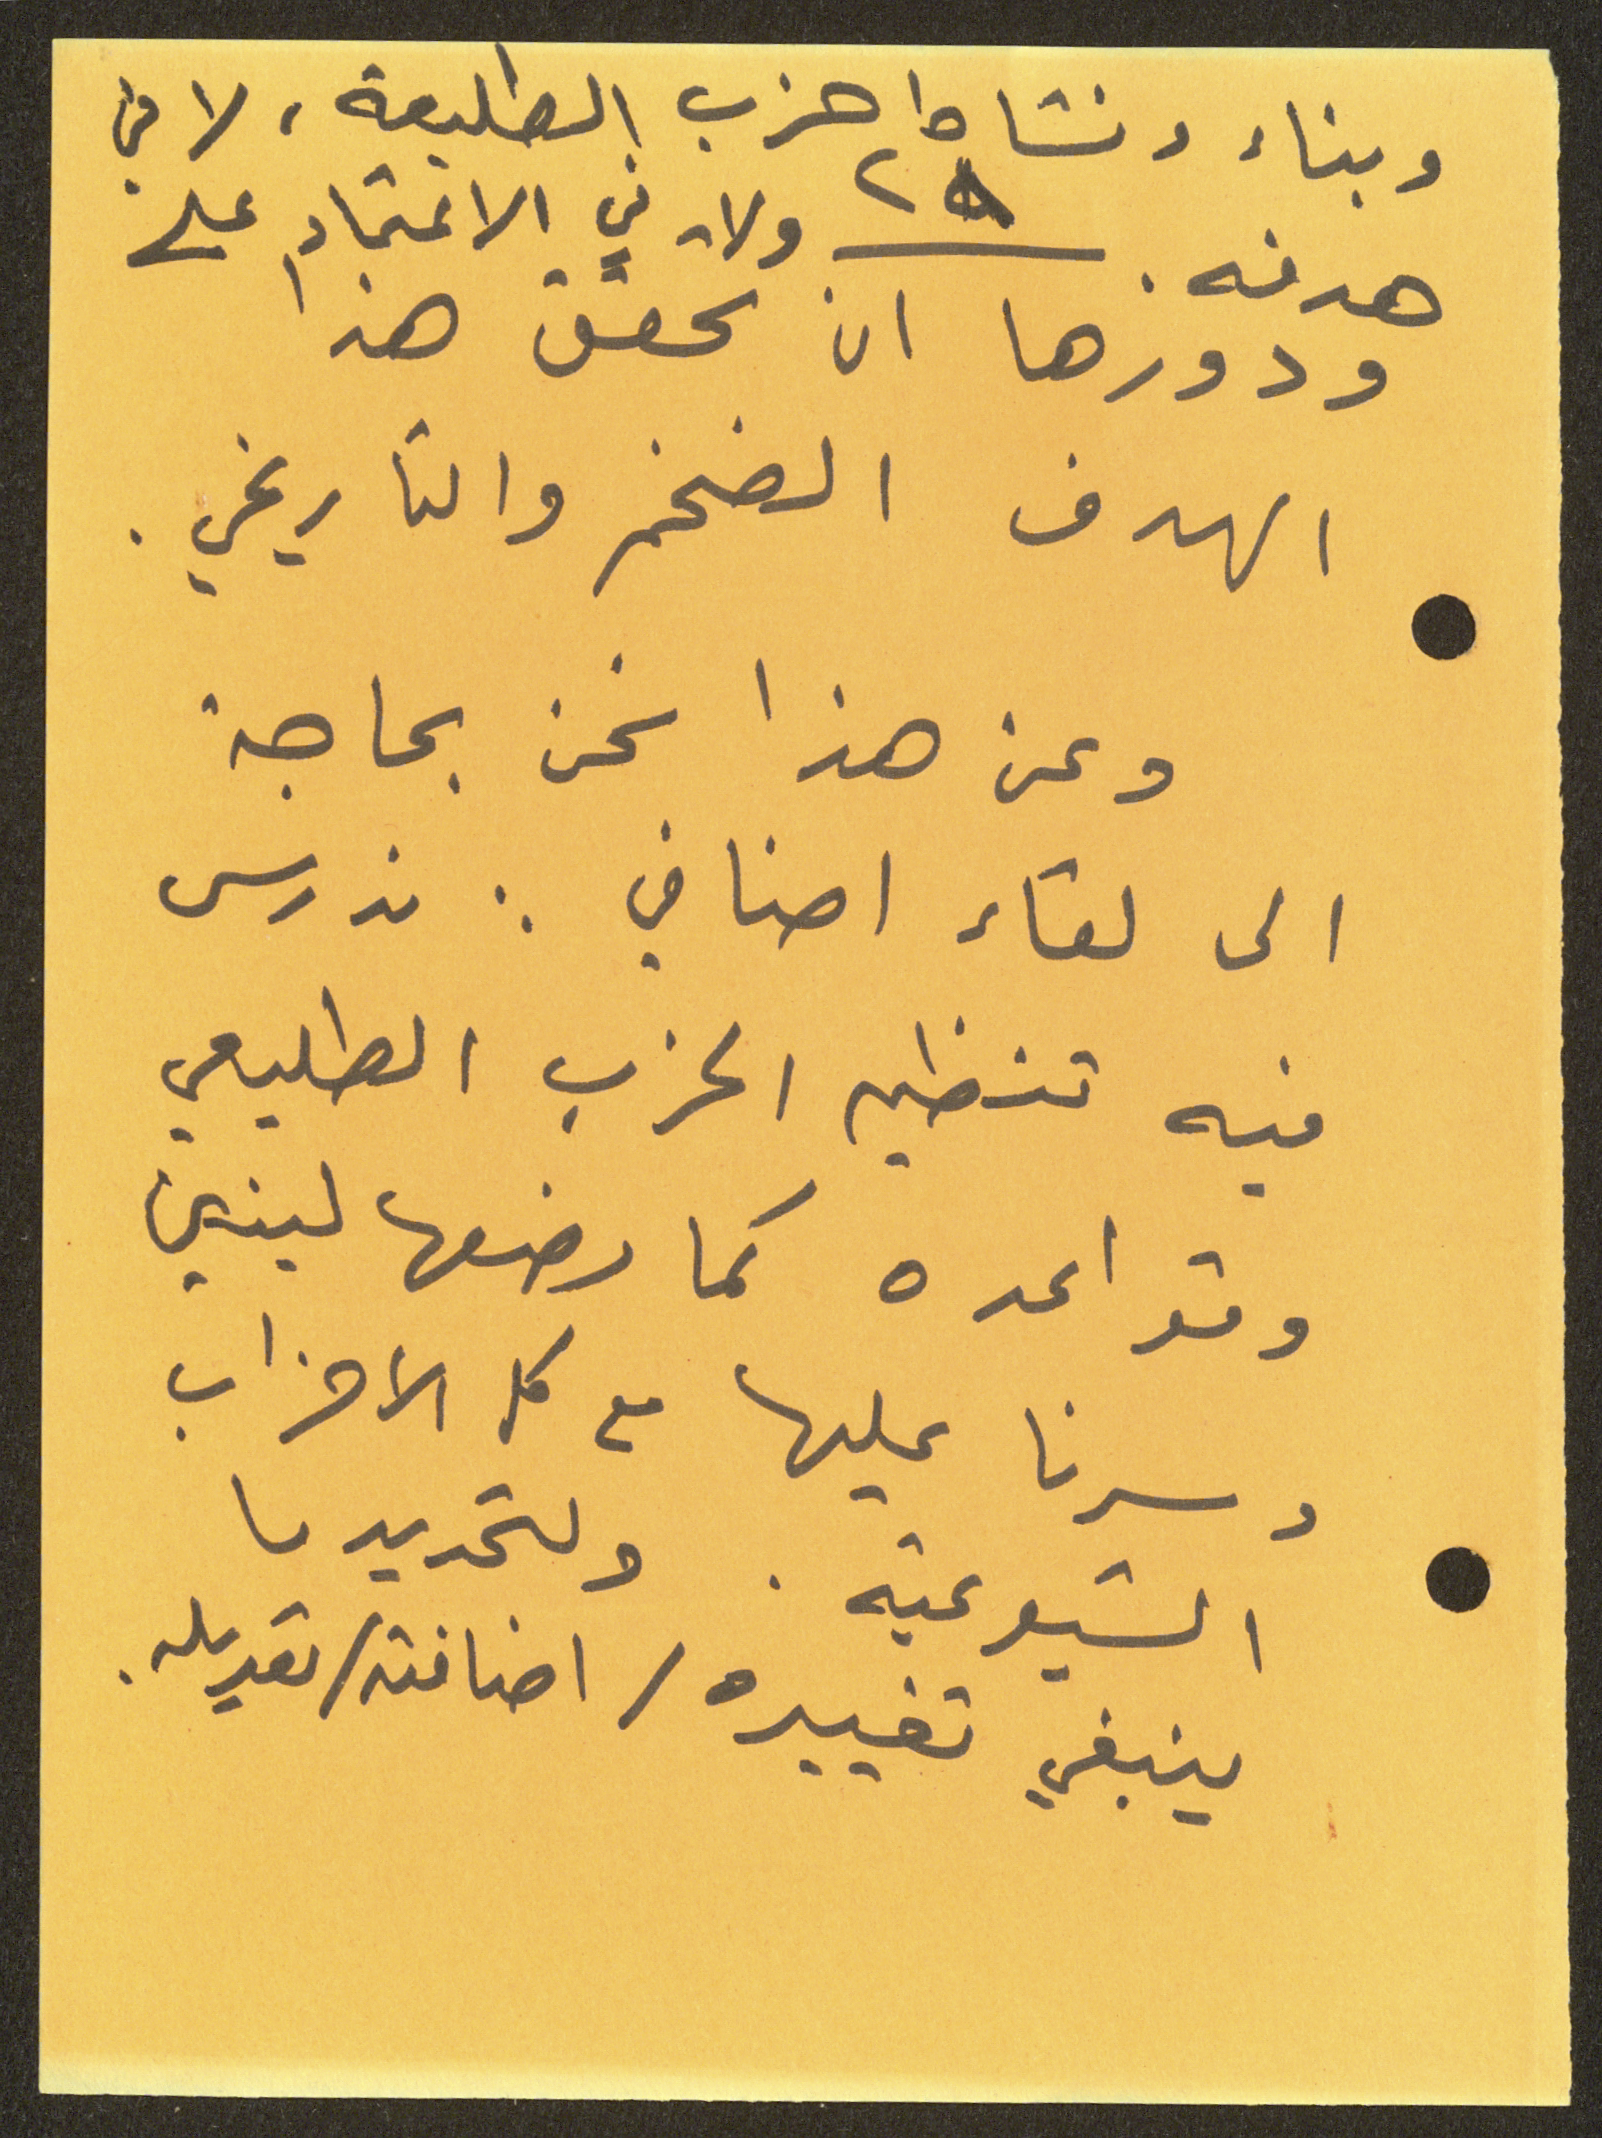 وبناء ونشاط حزب الطليعة، لا في
هدفه. ولا في الاعتماد على
٢٨
ودورها ان تحقق هذا
الهدف الضخم والتاريخي.
وعن هذا نحن بحاجة
الى لقاء اضافي: ندرس
فيه تنظيم الحزب الطليعي
وقواعده كما وضعها لينين
وسرنا عليها مع كل الاحزاب
الشيوعية. ولتحديد ما
ينبغي تغييره/اضافته/تعديله.